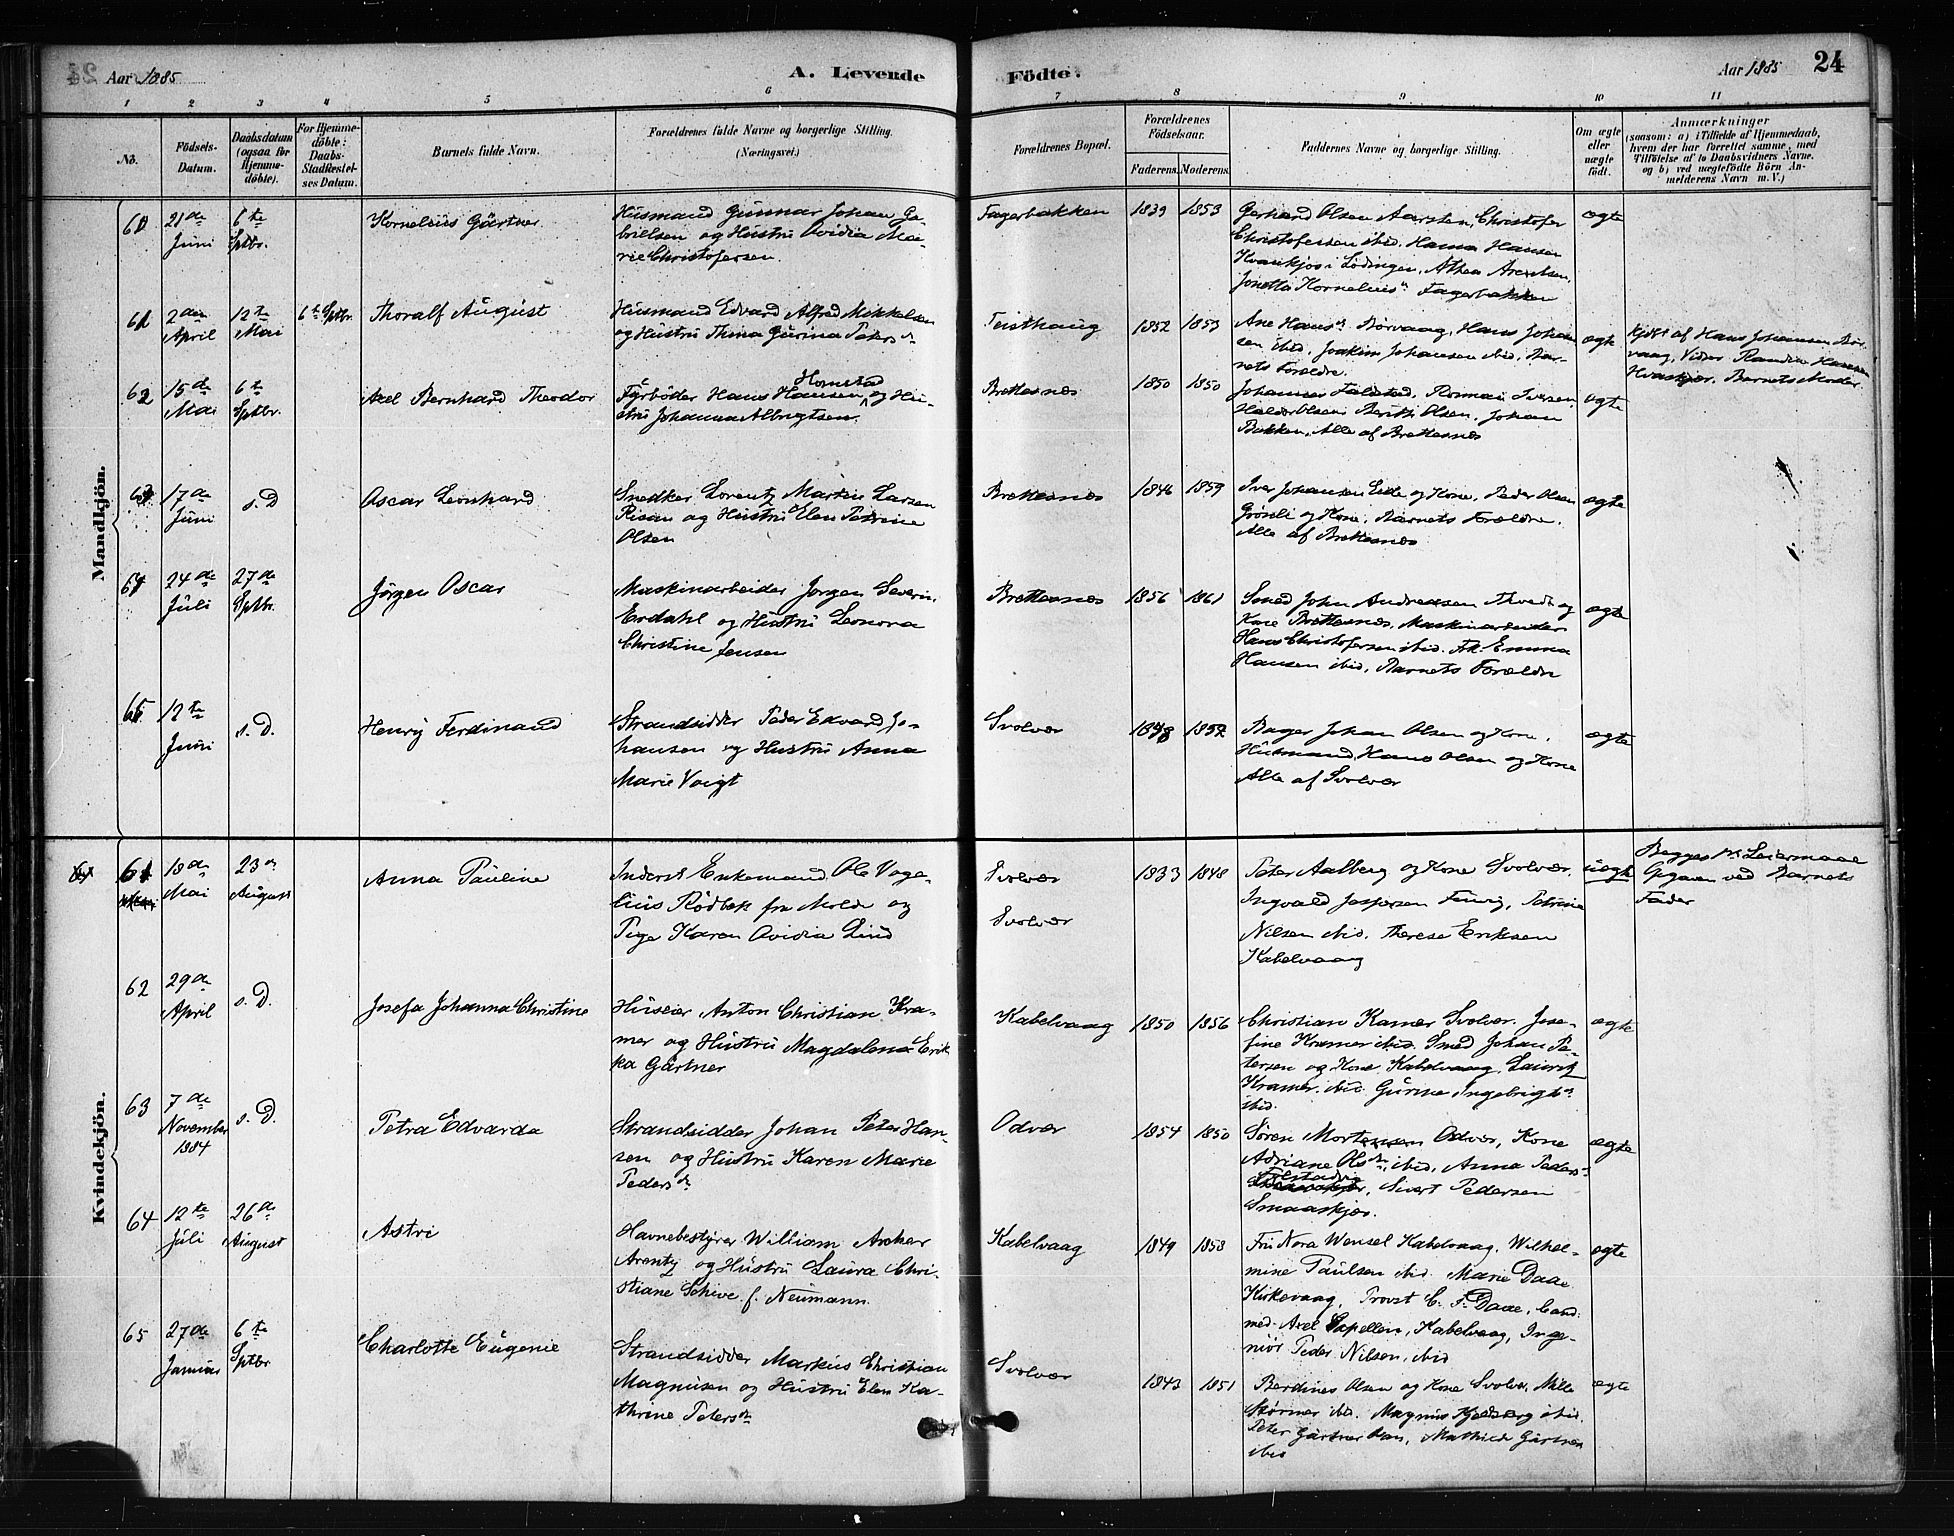 Aar 1885
A. Levende
Födte.
Aar 1885
24
1 2 3 4 5 6 7 8 9 10 11
No.
Födsels-
Datum.
Daabsdatum
(ogsaa for
Hjemme-
döbte).
For Hjemme-
döbte:
Daabs-
Stadfestel-
ses Datum.
Barnets fulde Navn.
Forældrenes fulde Navne og borgerlige Stilling.
(Næringsvei.)
Forældrenes Bopæl.
Forældrenes
Födselsaar.
Faderens. Moderens.
Faddernes Navne og borgerlige Stilling.
Om ægte
eller
uægte
födt.
Anmærkninger
(saasom: a) i Tilfælde af Hjemmedaab,
hvem der har forrettet samme, med
Tilföielse af to Daabsvidners Navne.
og b) ved uægtefödte Börn An-
melderens Navn m. V.)
Mandkjön.
21de
Juni
6te
Sptbr.
Kornelius Gärtner
Husmand Gunnar Johan Ga-
brielsen og Hustru Ovidia Ma-
rie Christofersen
Fagerbakken
1839 1853
Gerhard Olsen Aarsten, Christofer
Christofersen ibid. Hanna Hansen
i Lödingen, Athea Arentsen,
Jonetta Kornelius Fagerbakken
ægte
61
2den
April
12te
Mai
6te Sptbr.
Thoralf August
Husmand Edvard Alfred Mikkelsen
og Hustru Thina Gurina Peters
1852 1853
Ane Hans Börvaag, Hans Johan-
sen ibid, Joakim Johansen ibid, Bar-
nets Forældre.
ægte
Hjdbt af Hans Johansen Bör-
vaag, Vidner Randia Hansen
Barnets Moder.
62
15de
Mai
6te
Sptbr.
Axel Bernhard Theodor
Homstad
Fyrböder Hans Hansen, og Hu-
stru Johanna Albrigtsen
Brettesnæs
1850 1850
Johannes Falstad, Iversen,
Olsen, Berith Olsen, Johan
Bakken, Alle af Brettesnæs
ægte
63
17de
Juni
s. D
Oscar Leonhard
Snedker Lorentz Martin Larsen
Risan og Hustru Elen Petrine
Olsen
Brettesnæs
1846 1859
Iver Johansen Eide og Kone, Peder Olsen
Grönli og Kone, Barnets Forældre.
Alle af Brettesnæs
ægte
64
24de
Juli
27de
Sptbr.
Jörgen Oscar
Maskinarbeider Jörgen Severin
Erdahl og Hustru Leonora
Christine Jensen
Brettesnæs
1856 1861
Smed John Andreasen Tvedt og
Kone Brettesnæs, Maskinarbeider
Hans Christofersen ibid. Frk. Emma
Hansen ibid, Barnets Forældre
ægte
65
12te
Juni
s. D.
Henry Ferdinand
Strandsidder Peder Edvard Jo-
hansen og Hustru Anna
Marie Voigt
Svolvær
1848 1852
Bager Johan Olsen og Kone,
Husmand Hans Olsen og Kone
Alle af Svolvær
ægte
Kvindekjön.
61
18de
Mai
23de
August
Anna Pauline
Inderst Enkemand Ole Vage-
lius Rödbek fra Molde og
Pige Karen Ovidia Lind
Svolvær
Svolvær
1833 1848
Peter Aalberg og Kone Svolvær,
Ingvald Jespersen Petrine
Nilsen ibid. Therese Eriksen
Kabelvaag
uægte
Begges Leiermaal
Opgaven ved Barnets
Fader
62
29de
April
s. D.
Josefa Johanna Christine
Huseier Anton Christian Kra-
mer og Hustru Magdalena Erik-
ka Gärtner
Kabelvaag
1850 1856
Christian Kramer Svolvær. Jose-
fine Kramer ibid. Smed Johan Pe-
tersen og Kone Kabelvaag, Lauritz
Kramer ibid. Gurine Ingebrigts
ibid.
ægte
63
7de
November
1884
s. D.
Petra Edvarda
Strandsidder Johan Peter Han-
sen og Hustru Karen Marie
Peders
Odvær
1854 1850
Sören Mortensen Odvær, Kone
Adriane Ols ibid, Anna Peders
Sivert Pedersen
Smaaskjær.
ægte
64
12te
Juli
26de
August
Astri
Havnebestyrer William Archer
Arentz og Hustru Laura Chri-
stiane Schive f. Neumann.
Kabelvaag
1849 1858
Fru Nora Wensel Kabelvaag. Wilhel-
mine Paulsen ibid. Marie Daae
Kirkevaag, Provst C. F. Daae, Cand.
med. Axel Kabelvaag, Inge-
niör Peder Nilsen, ibid
ægte
65
27de
Januar
6te
Sptbr
Charlotte Eugenie
Strandsidder Markus Christian
Magnusen og Hustru Elen Ka-
thrine Peters
Svolvær
1843 1851
Berdines Olsen og Kone Svolvær,
Störmer ibid. Magnus Kjeldberg ibid.
Peter Gärtner Mathilde Gärtner
ibid
ægte